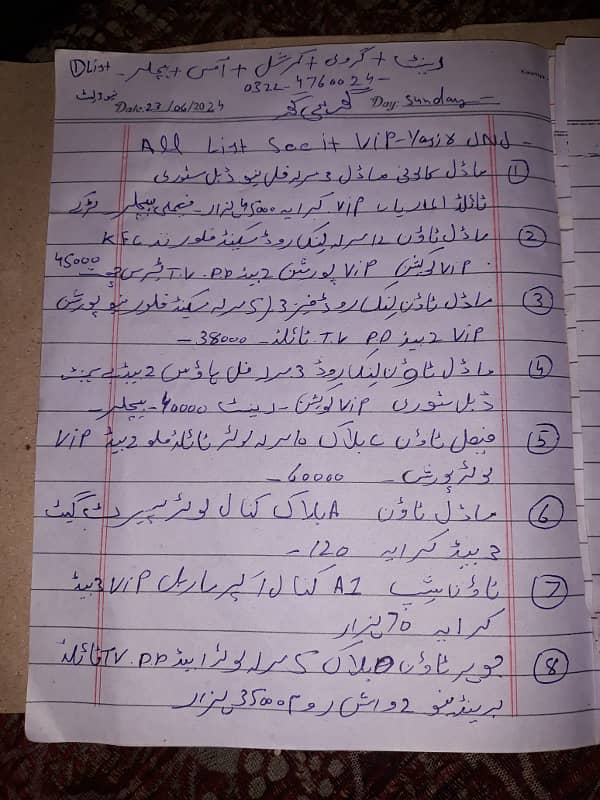 ① List رینٹ + گروی + کمرشل + آفس + بیچلر -
0322-4760024-
نیو لسٹ
Date: 23/06/2024 Day: Sunday
All List See it ViP-Yasir JNJ -
① ماڈل کالونی ماڈل 3 مرلہ فل نیو ڈبل سٹوری
ٹائلڈ الماریاں ViP کرایہ 45000 ہزار - فیملی بیچلر
② ماڈل ٹاؤن 12 مرلہ لنک روڈ سیکنڈ فلور نزد KFC
ViP لوکیشن ViP پورشن 2 بیڈ TV. DD ٹیرس 45000
③ ماڈل ٹاؤن لنک روڈ فیز 3، (5 مرلہ سیکنڈ فلور نیو پورشن
ViP 2 بیڈ TV DD ٹائلڈ - 38000 -
④ ماڈل ٹاؤن لنک روڈ 3 مرلہ فل ہاؤس 2 بیڈ بیسمنٹ
ڈبل سٹوری ViP لوکیشن - رینٹ 40000 - بیچلر -
⑤ فیصل ٹاؤن C بلاک 10 مرلہ لوئر ٹائلڈ فلور 2 بیڈ ViP
لوئر پورشن - 60000 -
⑥ ماڈل ٹاؤن A بلاک کنال لوئر سیپریٹ گیٹ
3 بیڈ کرایہ 120 -
⑦ ٹاؤن شپ A2 کنال اپر ماربل ViP 3 بیڈ
کرایہ 70 ہزار
⑧ جوہر ٹاؤن D بلاک 5 مرلہ لوئر 1 بیڈ TV. DD ٹائلڈ
برینڈ نیو 2 واش روم 35000 ہزار